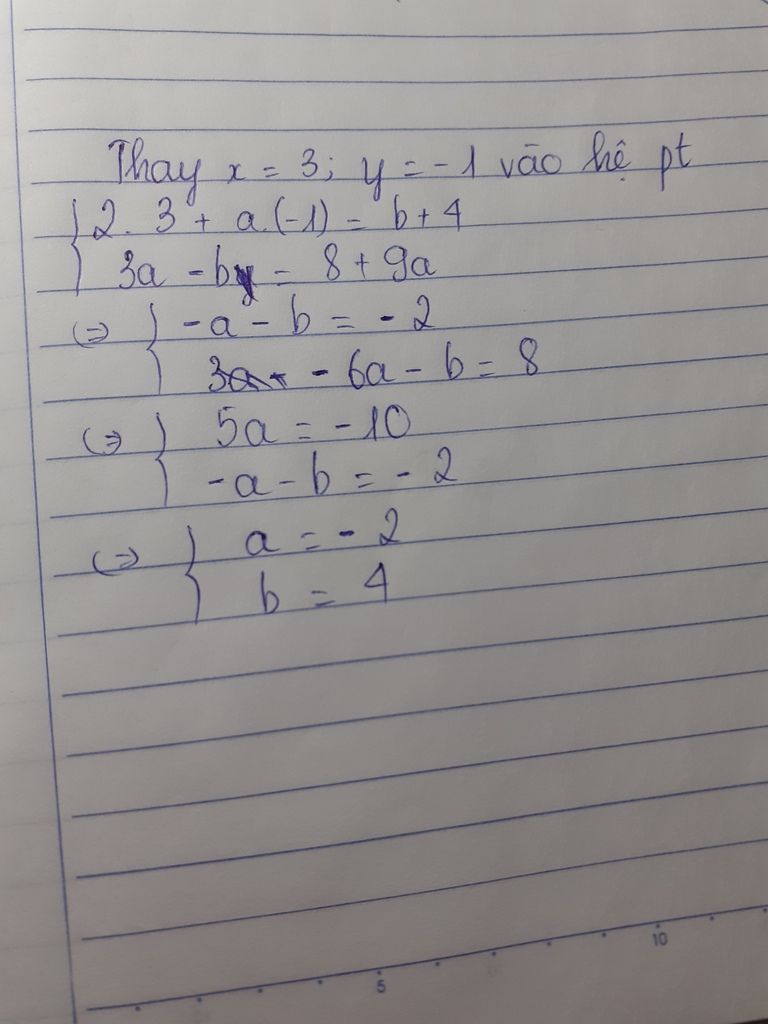 Thay x = 3; y = -1 vào hệ pt
2. 3 + a.(-1) = b + 4
3a - b = 8 + 9a
(=) -a - b = -2
- 6a - b = 8
(=) 5a = -10
-a - b = -2
(=) a = -2
b = 4
5 10